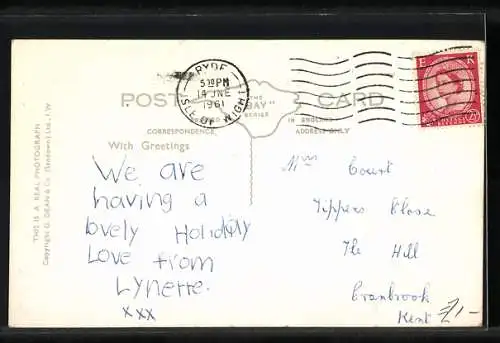 RYDE
5 30 PM
14 JNE
1961
ISLE OF WIGHT
E R
POST CARD
THE
"BAY"
SERIES
IN ENGLAND
CORRESPONDENCE
ADDRESS ONLY
With Greetings
We are
having a
lovely Holiday
Love from
Lynette.
xxx
Mrs Court
Tippers Close
The Hill
Cranbrook
Kent
£1-
THIS IS A REAL PHOTOGRAPH
Copyright G. DEAN & Co (Sandown) Ltd., I.W.